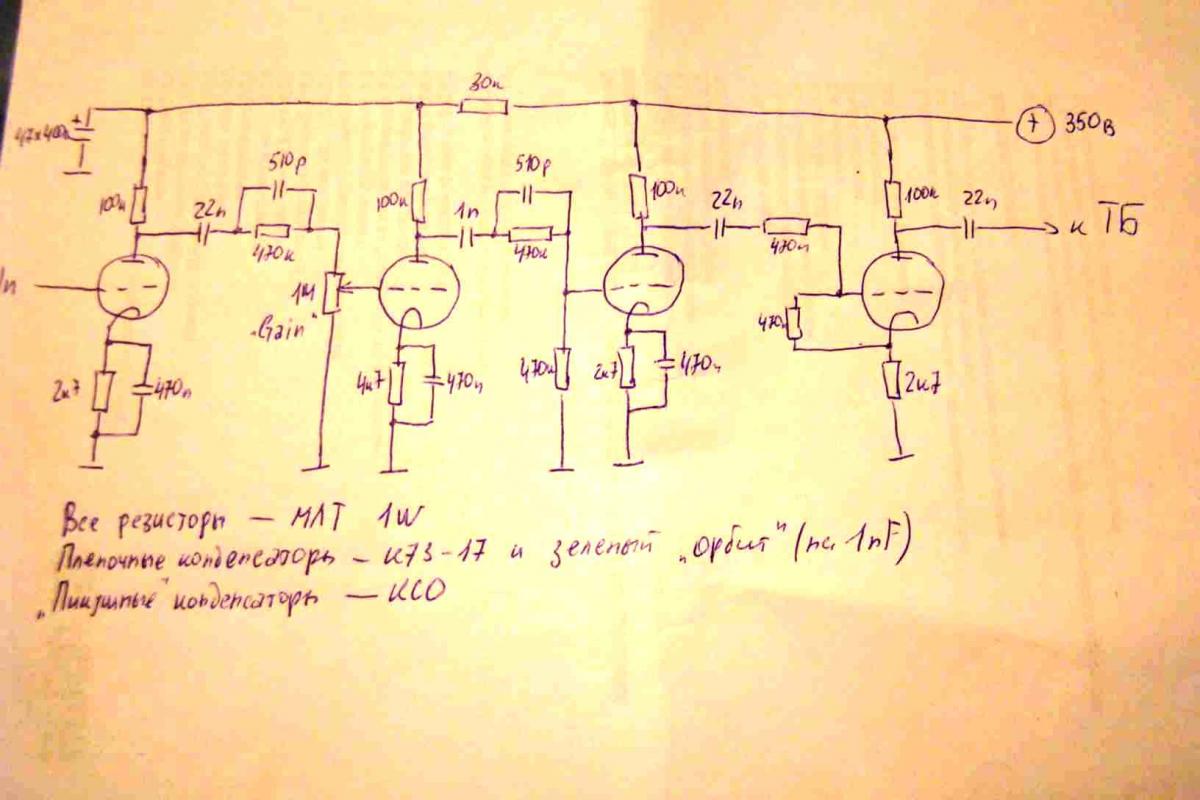 30к
47x400в
+
350в
510p
510p
100к
22n
100к
1n
100к
22n
100к
22n
к ТБ
470к
470к
470к
1М
"Gain"
470к
2к7
470n
4к7
470n
470к
2к7
470n
2к7
Все резисторы — МЛТ 1W
Пленочные конденсаторы — К73-17 и зеленый "Орбит" (на 1nF)
"Пикушные" конденсаторы — КСО